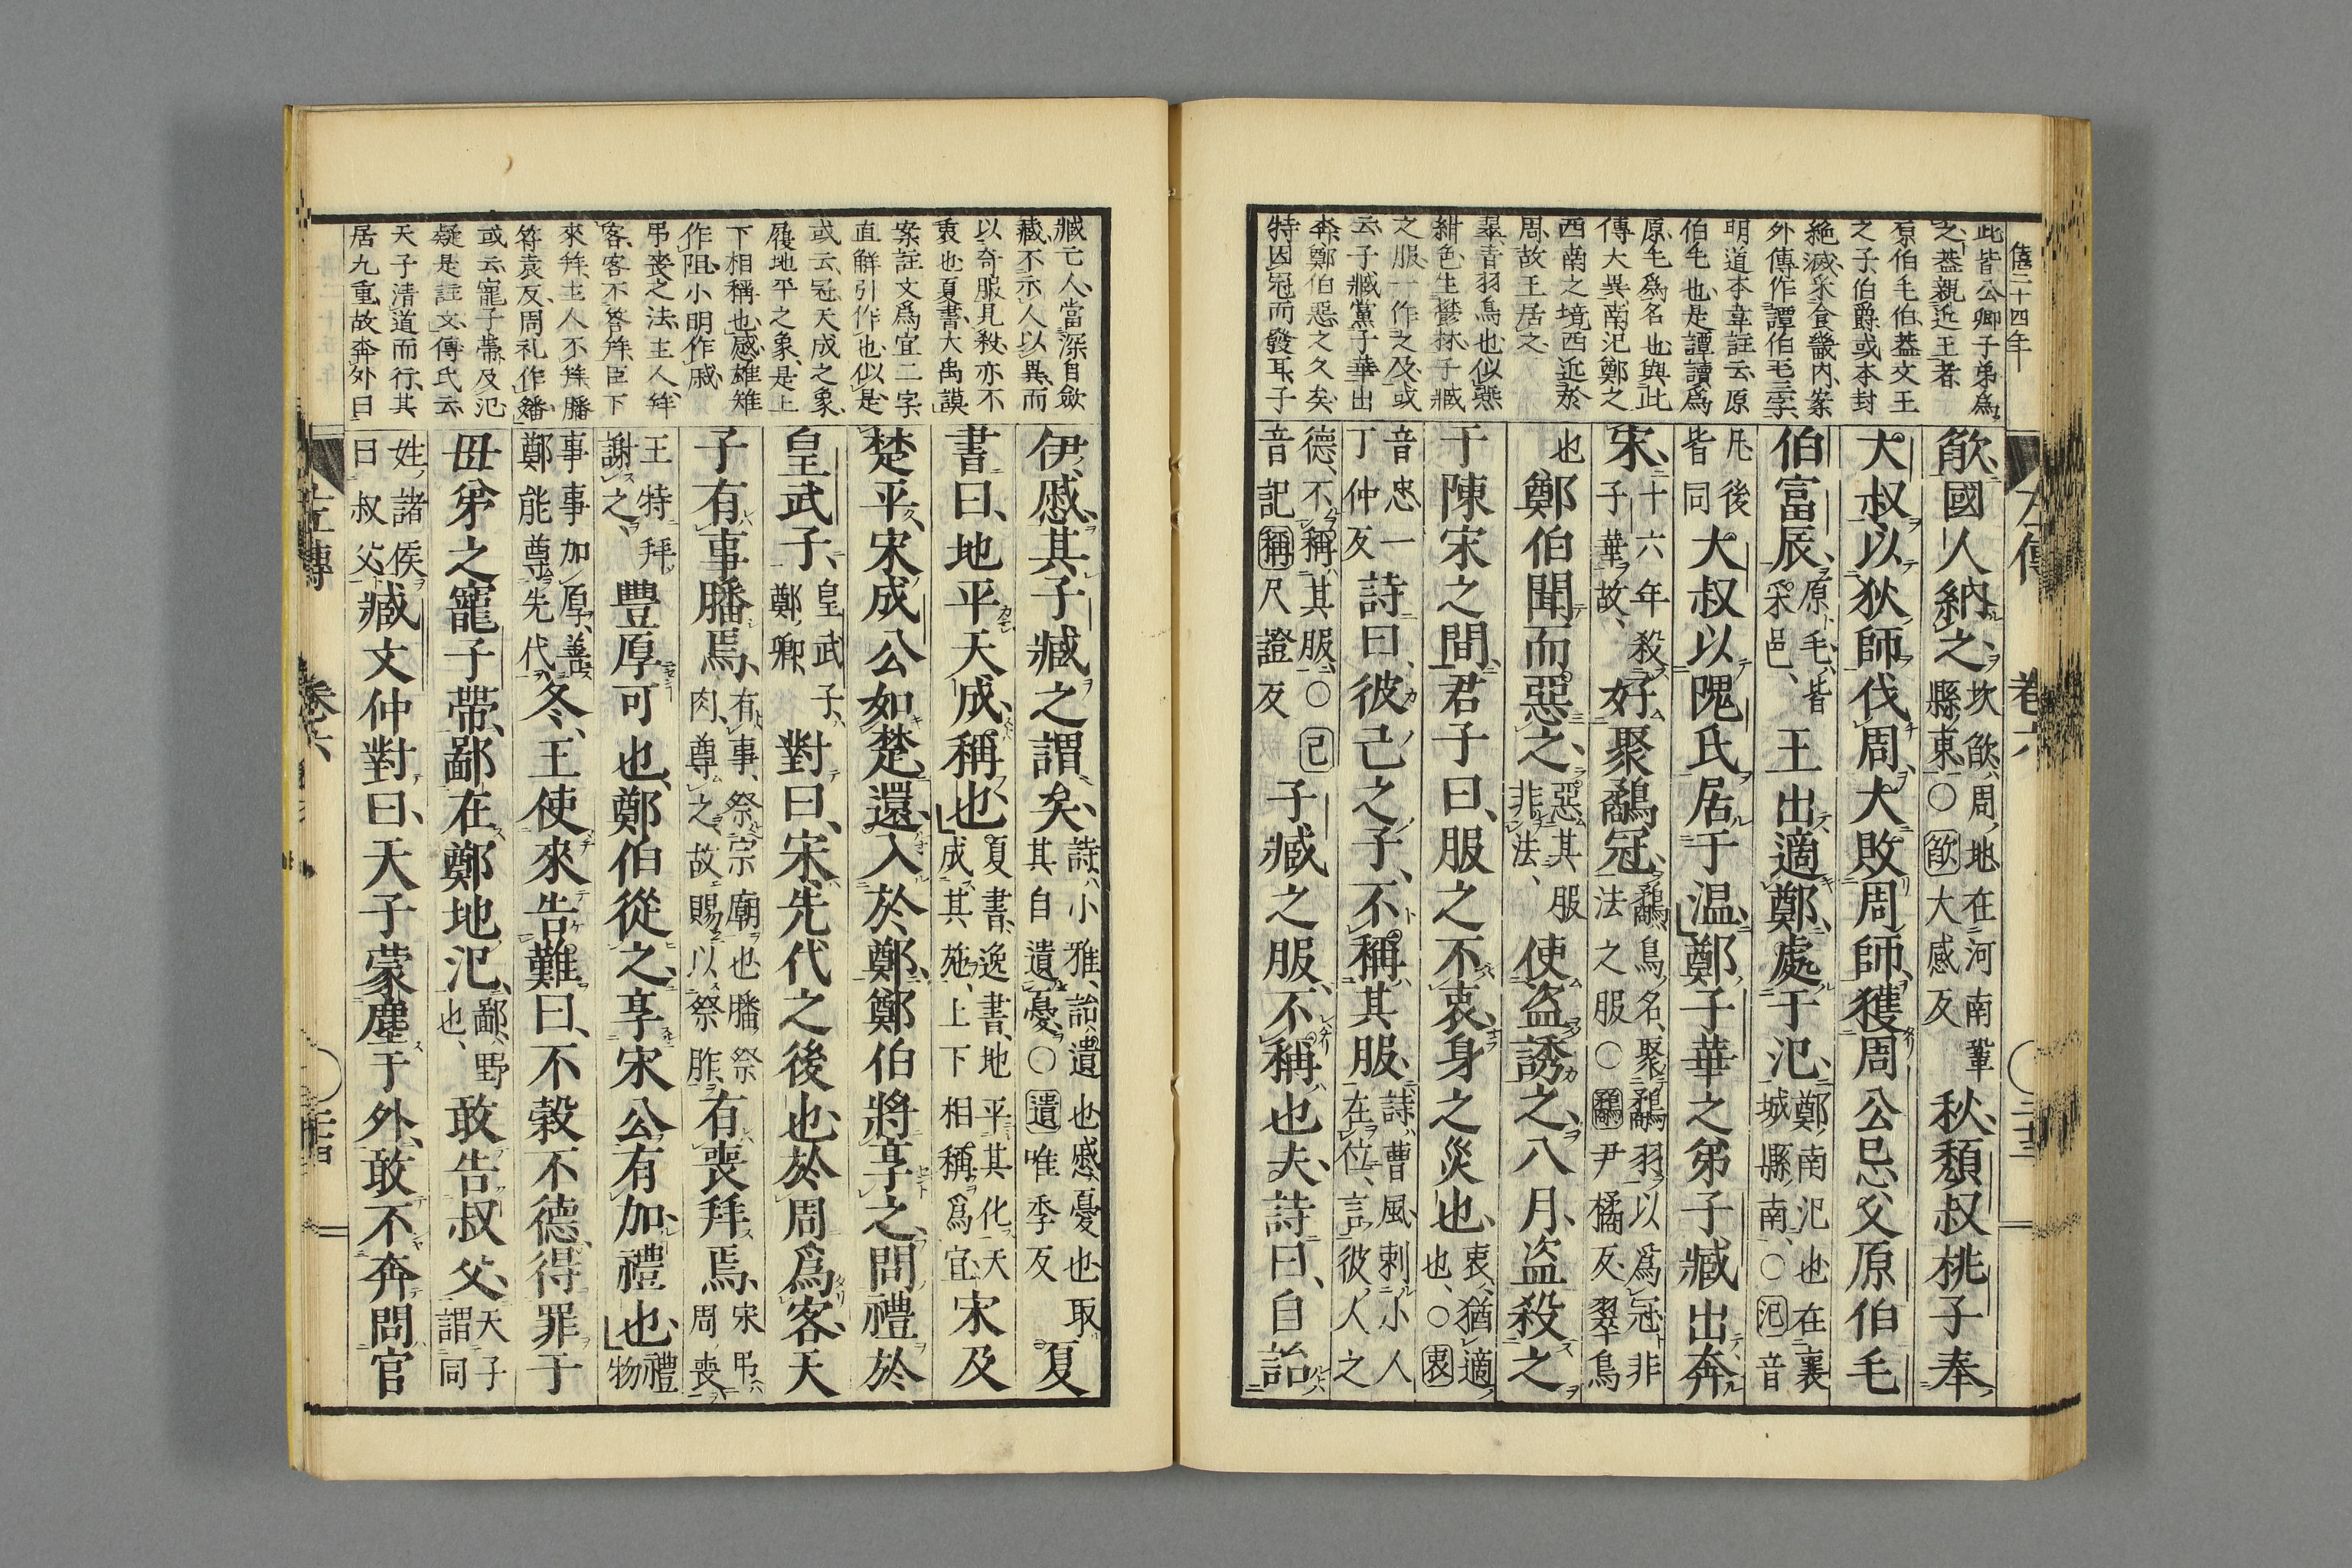 僖二十四年
此皆公卿子弟爲
之蓋親近王者
原伯毛伯蓋文王
之子伯爵或本封
絶滅采食畿内案
外傳作譚伯毛三字
明道本韋註云原
伯毛也是譚讀爲
原毛爲名也與此
傳大異南汜鄭之
西南之境西近於
周故王居之
翠音羽鳥也似燕
紺色生鬱林子臧
之服一作之及或
云子臧黨子華出
奔鄭伯惡之久矣
特因冠而發耳子
欿國人納之坎欿周地在河南鞏縣東○欿大感反秋頹叔桃子奉
大叔以狄師伐周大敗周師獲周公忌父原伯毛
伯富辰原毛皆采邑王出適鄭處于汜鄭南汜也在襄城縣南○汜音
凡後皆同大叔以隗氏居于温鄭子華之弟子臧出奔
宋十六年殺子華故好聚鷸冠鷸鳥名聚鷸羽以爲冠非法之服○鷸尹橘反翠鳥
也鄭伯聞而惡之惡其服非法使盜誘之八月盜殺之
于陳宋之間君子曰服之不衷身之災也衷猶適也○衷
音忠一丁仲反詩曰彼己之子不稱其服詩曹風刺小人在位言彼人之
德不稱其服○己音記稱尺證反子臧之服不稱也夫詩曰自詒
左傳 卷六
臧亡人當深自斂
藏不示人以異而
以奇服見殺亦不
衷也夏書大禹謨
案註文爲宜二字
直解引作也似是
或云冠天成之象
履地平之象是上
下相稱也感雄雉
作阻小明作戚
弔喪之法主人拜
客客不答拜臣下
來拜主人不拜膰
符袁反周礼作燔
或云寵子帶及汜
疑是註文傳氏云
天子清道而行其
居九重故奔外曰
伊慼其子臧之謂矣詩小雅詒遺也慼憂也取其自遺憂○遺唯季反夏
書曰地平天成稱也夏書逸書地平其化天成其施上下相稱爲宜宋及
楚平宋成公如楚還入於鄭鄭伯將享之問禮於
皇武子皇武子鄭卿對曰宋先代之後也於周爲客天
子有事膰焉有事祭宗廟也膰祭肉尊之故賜以祭胙有喪拜焉宋弔周喪
王特拜謝之豐厚可也鄭伯從之享宋公有加禮也禮物
事事加厚善鄭能尊先代冬王使來告難曰不穀不德得罪于
毋弟之寵子帶鄙在鄭地汜鄙野也敢告叔父天子謂同
姓諸侯曰叔父臧文仲對曰天子蒙塵于外敢不奔問官
左傳 卷六